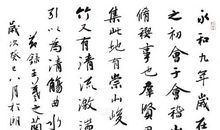 永和九年歲在
之初會于會稽山
脩稧事也羣賢
集此地有崇山峻
竹又有清流激湍
引以為流觴曲水
節錄王羲之蘭
歲次癸巳八月於